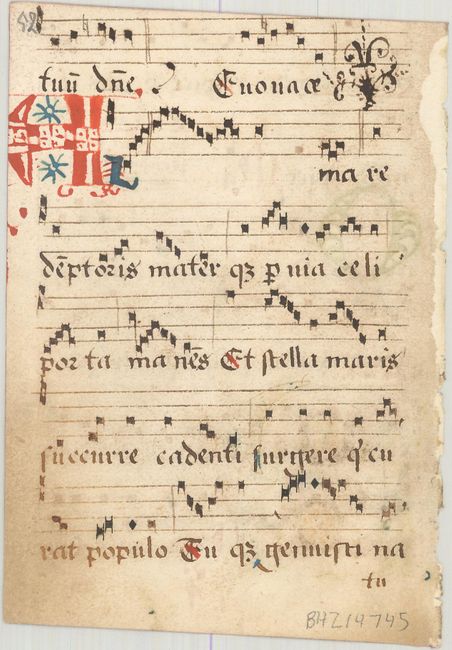 82
tuū dn̄e. Euouae
L ma re
dēptoris mater qȝ ꝑ uia celi
porta manēs Et stella maris
succurre cadenti surgere q' cu
rat populo Tu qȝ genuisti na
tu
BHZ14745